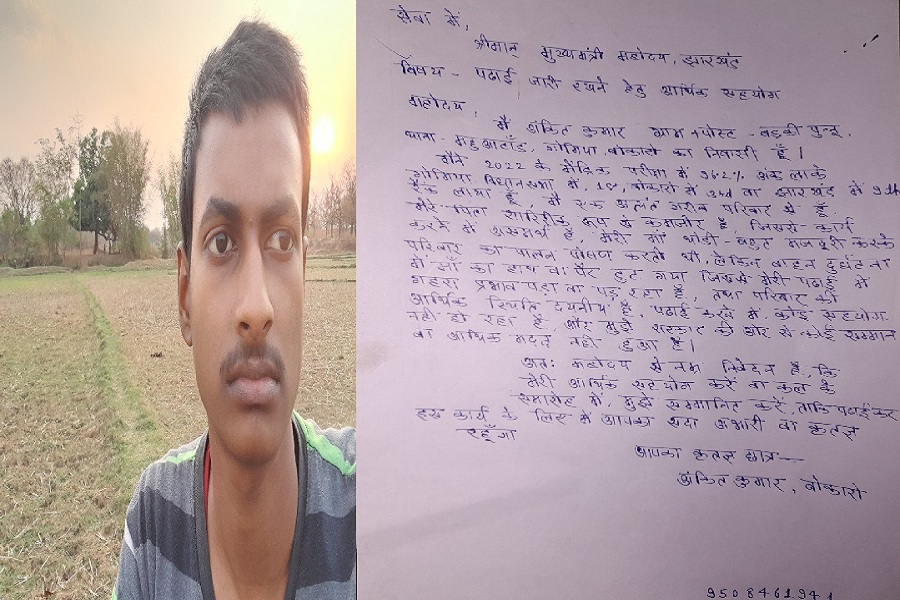 सेवा में,
श्रीमान् मुख्यमंत्री महोदय, झारखंड
विषय - पढ़ाई जारी रखने हेतु आर्थिक सहयोग
महोदय,
मैं अंकित कुमार ग्राम+पोस्ट - बड़की पुन्नू,
थाना - महुआटाँड़, गोमिया, बोकारो का निवासी हूँ।
मैंने 2022 के मैट्रिक परीक्षा में 96.2% अंक लाके
गोमिया विधानसभा में, 1st, बोकारो में 2nd वा झारखंड में 9th
रैंक लाया हूँ, मैं एक अत्यंत गरीब परिवार से हूँ
मेरे पिता शारिरीक रूप से कमजोर है, जिससे कार्य
करने में असमर्थ है, मेरी माँ थोड़ी-बहुत मजदूरी करके
परिवार का पालन पोषण करती थी, लेकिन वाहन दुर्घटना
में माँ का हाथ वा पैर टुट गया जिसके मेरी पढ़ाई में
गहरा प्रभाव पड़ा वा पड़ रहा है, तथा परिवार की
आर्थिक स्थिति दयनीय है, पढ़ाई करने में कोई सहयोग
नहीं हो रहा है, और मुझे सरकार की ओर से कोई सम्मान
वा आर्थिक मदत नहीं हुआ है।
अतः महोदय से नम्र निवेदन है, कि
मेरी आर्थिक सहयोग करें वा कल के
समारोह में, मुझे सम्मानित करें, ताकि पढाई कर
इस कार्य के लिए मैं आपका सदा अभारी वा कृतज्ञ
रहूँगा
आपका कृतज्ञ छात्र—
अंकित कुमार, बोकारो
9508461941